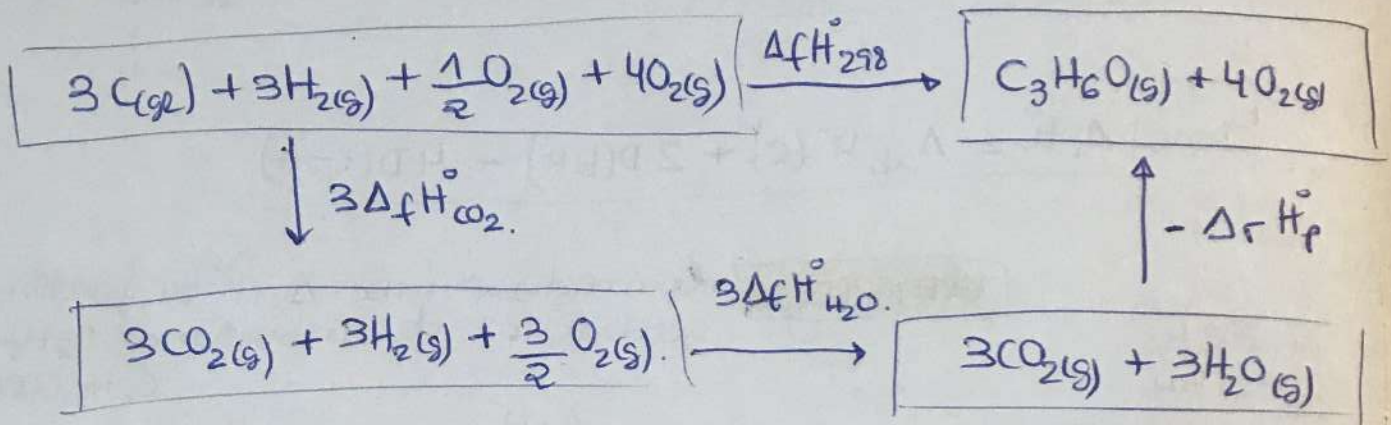 3C(gr) + 3H₂(g) + 1/2 O₂(g) + 4O₂(g) ΔfH°298 → C₃H₆O(g) + 4O₂(g)
↓ 3ΔfH°CO₂. ↑ - ΔrH°p
3CO₂(g) + 3H₂(g) + 3/2 O₂(g). 3ΔfH°H₂O. → 3CO₂(g) + 3H₂O(g)